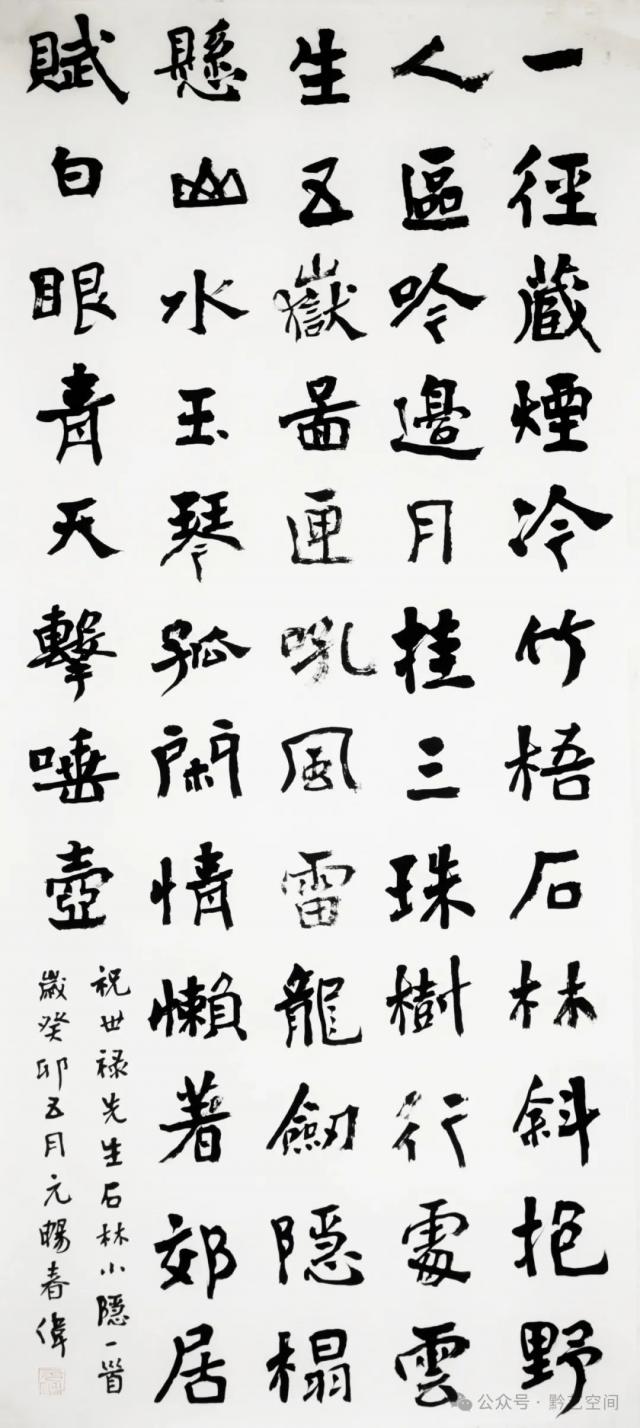 一徑蔵煙冷竹梧石林斜抱野
人區吟邊月挂三珠樹行處雲
生五嶽啚匣吼風雷龍劒隱榻
懸山水玉琴孤閑情懶著郊居
賦白眼青天擊唾壺
祝世禄先生石林小隱一首
歲癸卯五月元暘春偉
公众号·黔艺空间